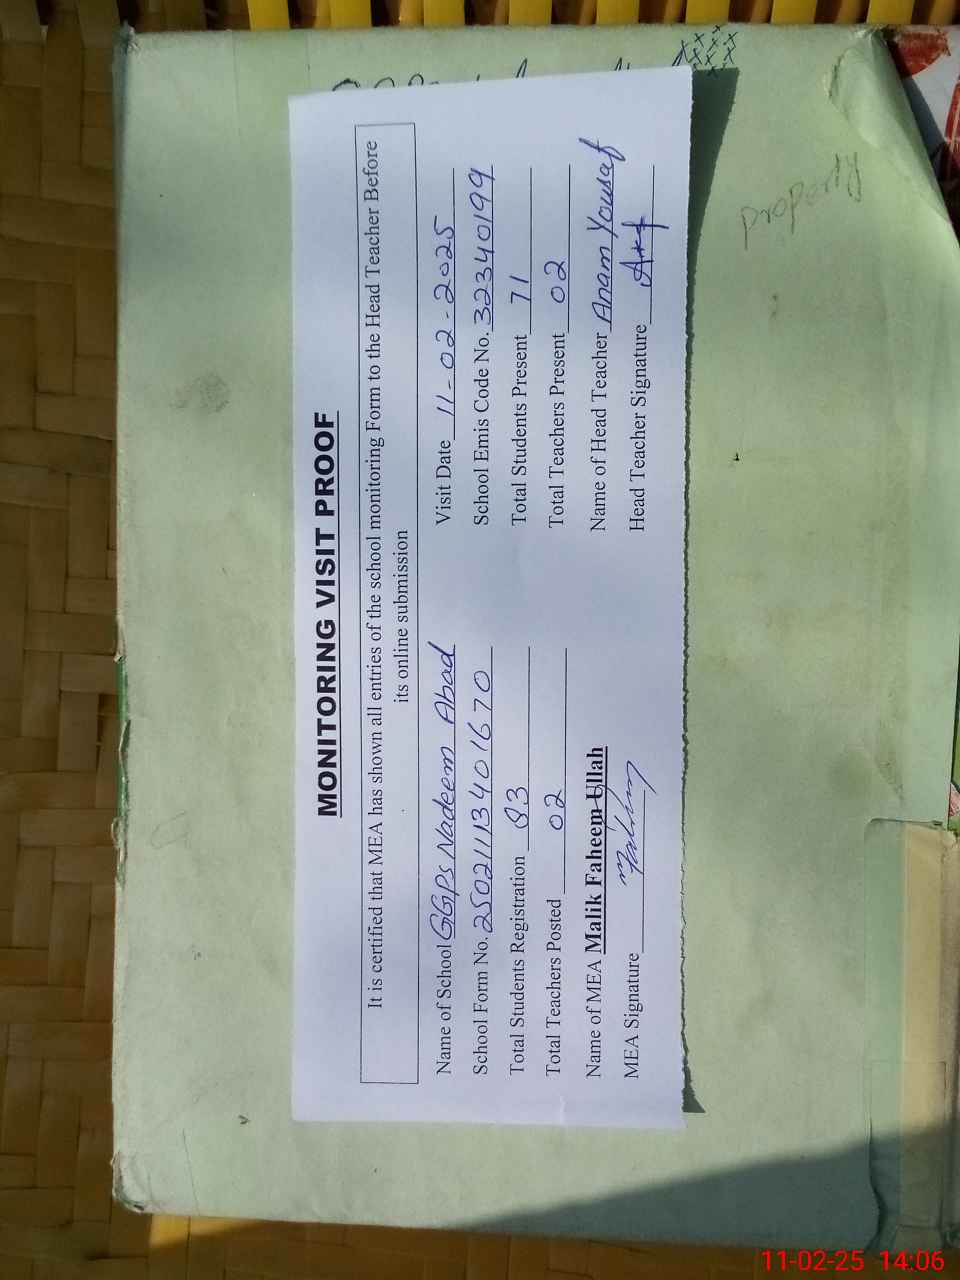 MONITORING VISIT PROOF
It is certified that MEA has shown all entries of the school monitoring Form to the Head Teacher Before
its online submission
Name of School GGPS Nadeem Abad Visit Date 11-02-2025
School Form No. 25021113401670 School Emis Code No. 32340199
Total Students Registration 83 Total Students Present 71
Total Teachers Posted 02 Total Teachers Present 02
Name of MEA Malik Faheem Ullah Name of Head Teacher Anam Yousaf
MEA Signature Head Teacher Signature
Property
11-02-25 14:06